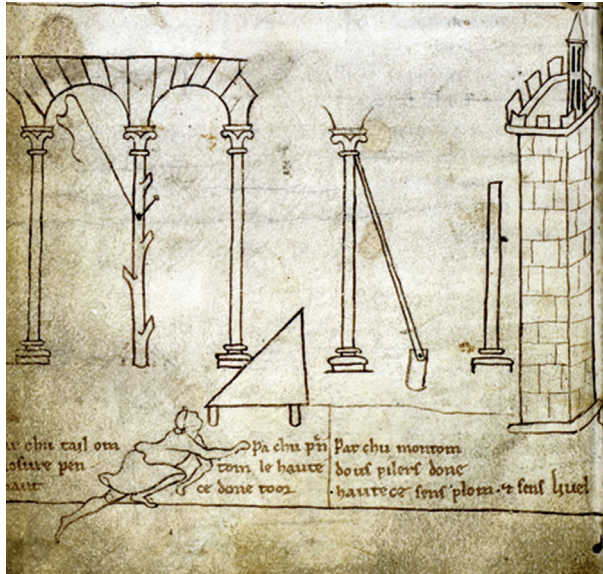 ar chu tail om
osure pen
Pa chu pñ
tom le haute
ce done toor
Par chu montom
dous pilers done
hautece sens plom · & sens livel